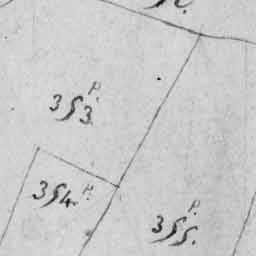 353. p.
354. p.
355. p.